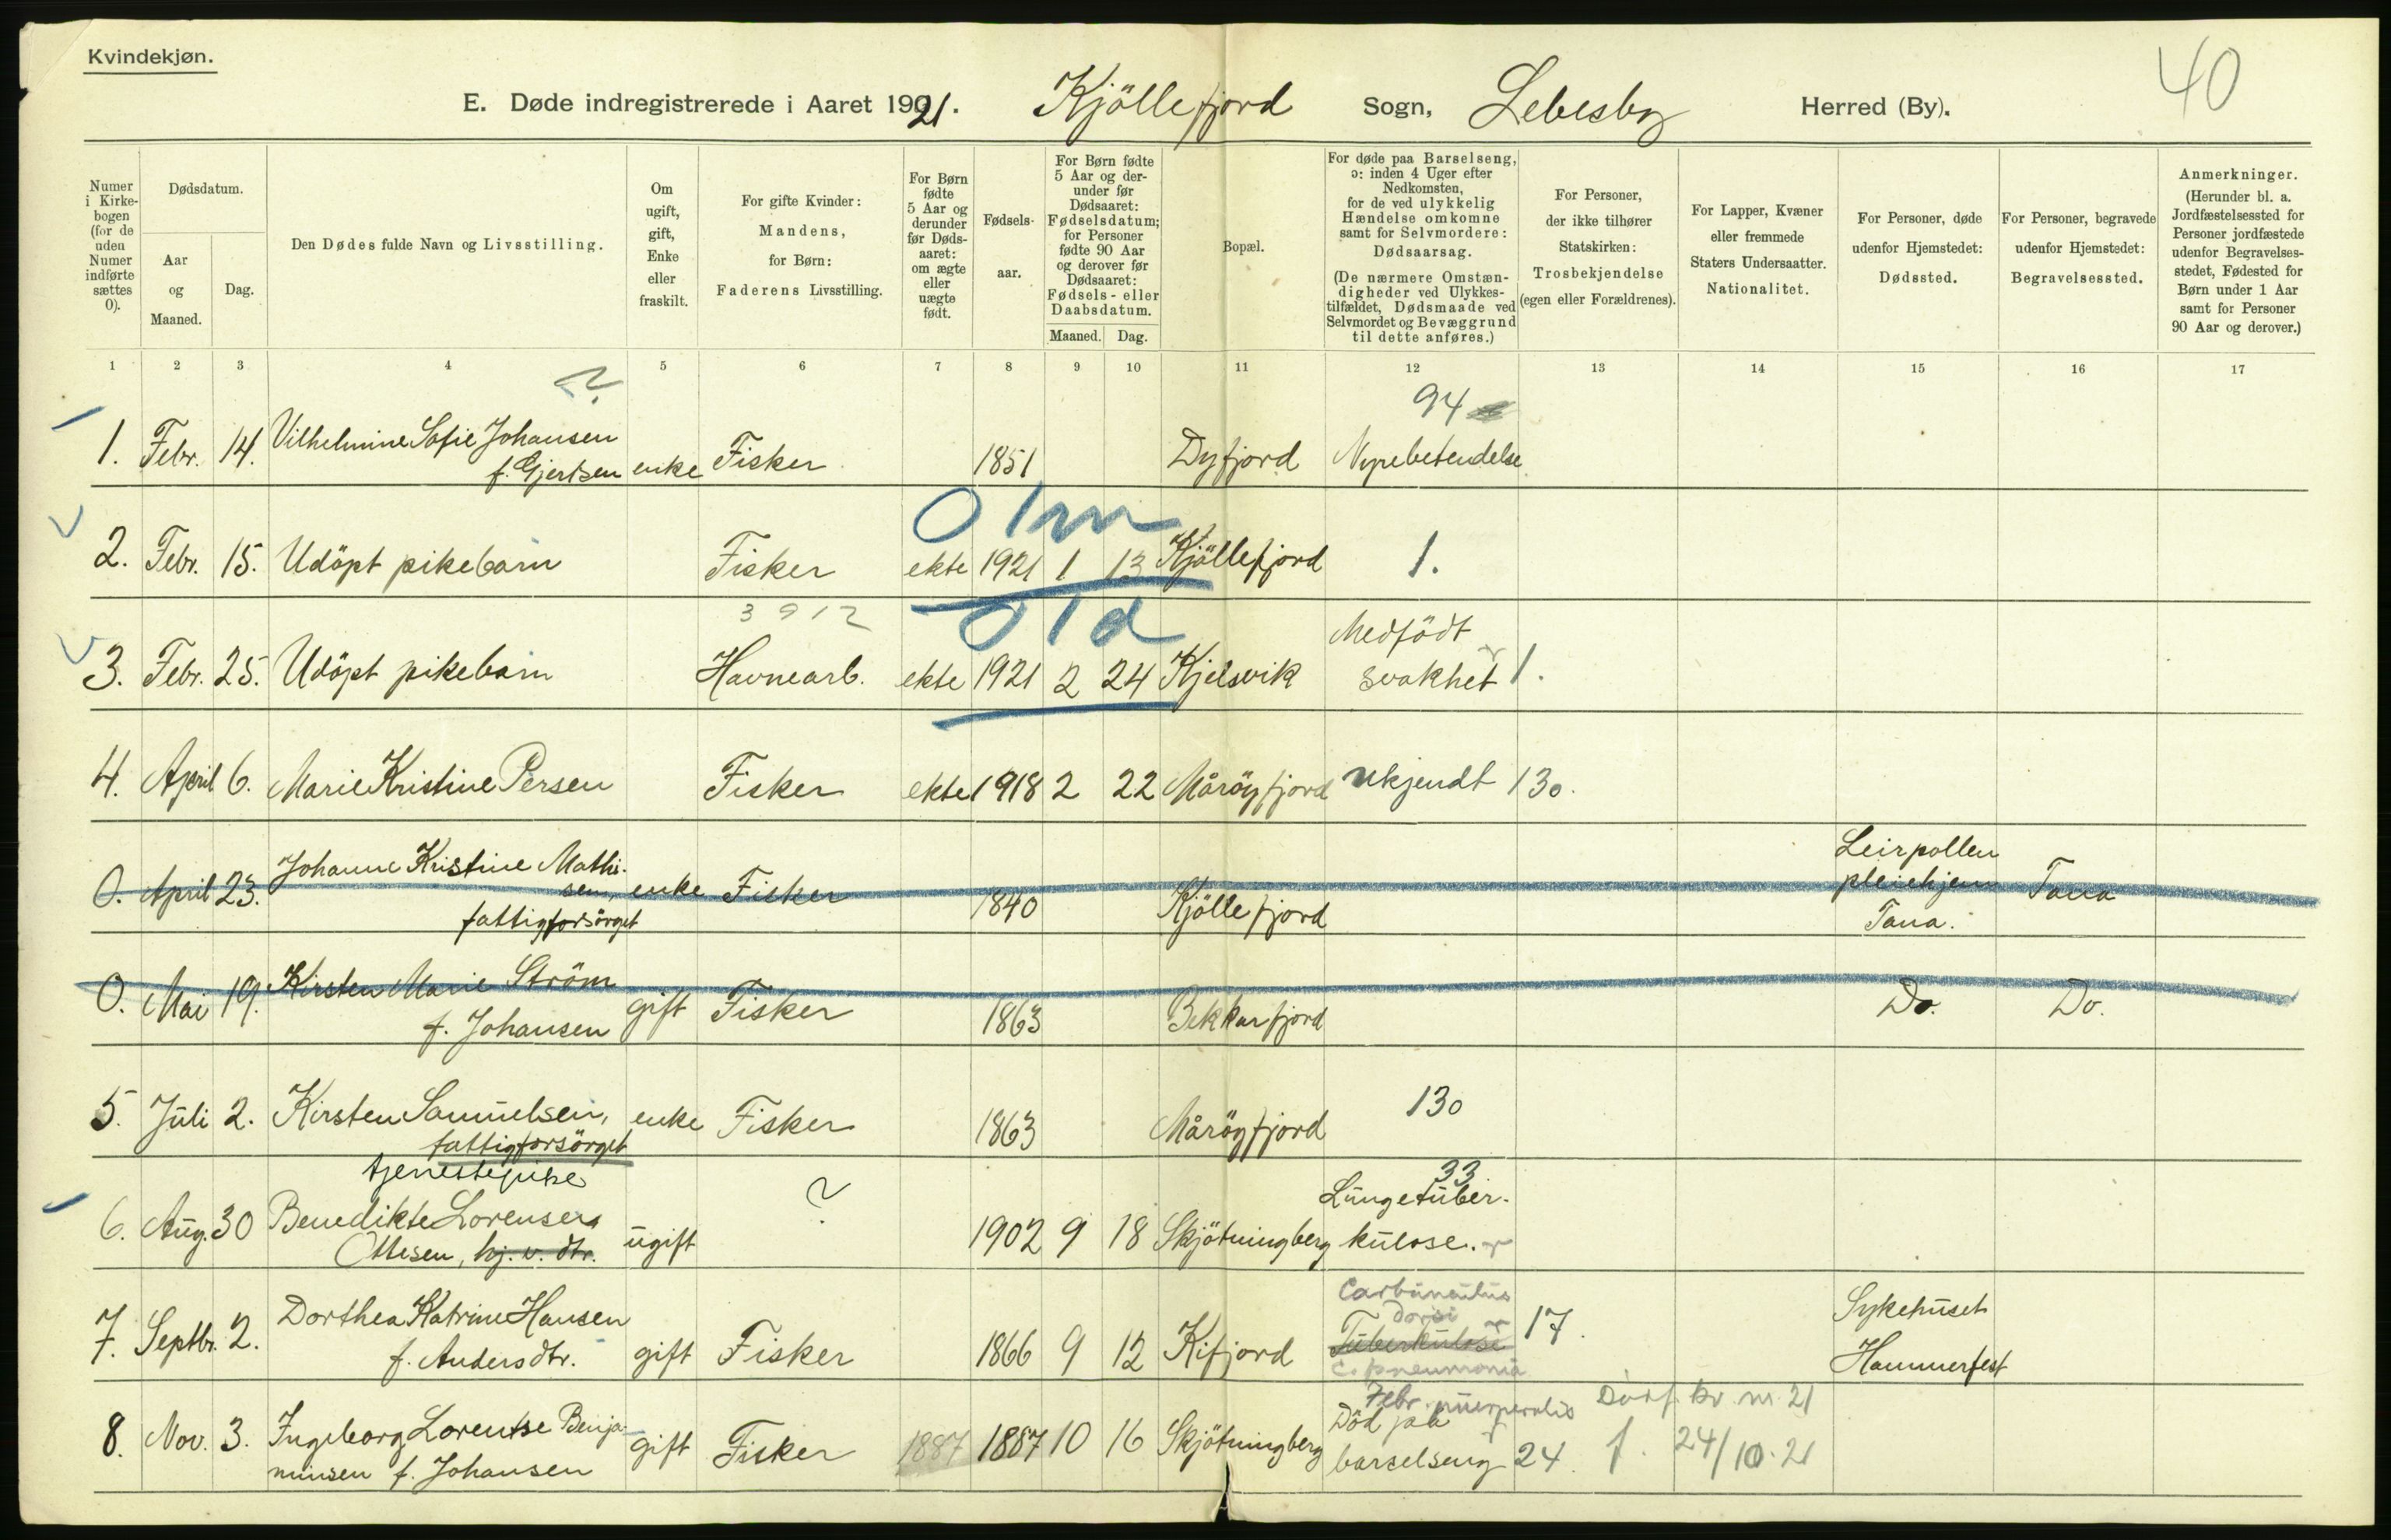 Kvindekjøn.
40
E. Døde indregistrerede i Aaret 1921. Kjöllefjord Sogn, Lebesby Herred (By).
Numer i Kirkebogen (for de uden Numer indførte sættes 0).
Dødsdatum.
Aar og Maaned.
Dag.
Den Dødes fulde Navn og Livsstilling.
Om ugift, gift, Enke eller fraskilt.
For gifte Kvinder: Mandens, for Børn: Faderens Livsstilling.
For Børn fødte 5 Aar og derunder før Dødsaaret: om ægte eller uægte født.
Fødselsaar.
For Børn fødte 5 Aar og derunder før Dødsaaret: Fødselsdatum; for Personer fødte 90 Aar og derover før Dødsaaret: Fødsels- eller Daabsdatum.
Maaned. Dag.
Bopæl.
For døde paa Barselseng, ɔ: inden 4 Uger efter Nedkomsten, for de ved ulykkelig Hændelse omkomne samt for Selvmordere: Dødsaarsag.
(De nærmere Omstændigheder ved Ulykkestilfældet, Dødsmaade ved Selvmordet og Bevæggrund til dette anføres.)
For Personer, der ikke tilhører Statskirken: Trosbekjendelse (egen eller Forældrenes).
For Lapper, Kvæner eller fremmede Staters Undersaatter. Nationalitet.
For Personer, døde udenfor Hjemstedet: Dødssted.
For Personer, begravede udenfor Hjemstedet: Begravelsessted.
Anmerkninger.
(Herunder bl. a. Jordfæstelsessted for Personer jordfæstede udenfor Begravelsesstedet, Fødested for Børn under 1 Aar samt for Personer 90 Aar og derover.)
1 2 3 4 5 6 7 8 9 10 11 12 13 14 15 16 17
? 94
1. Febr. 14. Vilhelmine Sofie Johansen
f. Gjertsen enke Fisker 1851 Dyfjord Nyrebetendelse
0 1m
2. Febr. 15. Udöpt pikebarn Fisker ekte 1921 1 13 Kjöllefjord 1.
3912 0 1d
3. Febr. 25. Udöpt pikebarn Havnearb. ekte 1921 2 24 Kjelsvik Medfödt
svakhet 1.
4. April 6. Marie Kristine Persen Fisker ekte 1918 2 22 Måröyfjord ukjendt 130.
0. April 23. Johanne Kristine Mathisen, enke Fisker 1840 Kjöllefjord Leirpollen
pleiehjem Tana
fattigforsörget Tana.
0. Mai 19. Kirsten Marie Ström
f. Johansen gift Fisker 1863 Bekkarfjord Do. Do.
5. Juli 2. Kirsten Samuelsen, enke Fisker 1863 Måröyfjord 130
fattigforsörget
tjenestepike 33
6. Aug. 30 Benedikte Lorensen ? Lungetuber-
Ottesen, hj. v. dtr. ugift 1902 9 18 Skjötningberg kulose.
7. Septbr. 2. Dorthea Katrine Hansen Carbunculus
dorsi
f. Andersdtr. gift Fisker 1866 9 12 Kifjord Tuberkulose 17. Sykehuset
C. pneumonia Hammerfest
Febr. puerperalis Dödf. kv. nr. 21
8. Nov. 3. Ingeborg Lorentse Benja- gift Fisker 1887 1887 10 16 Skjötningberg Död på
minsen f. Johansen barselseng 24. f. 24/10.21